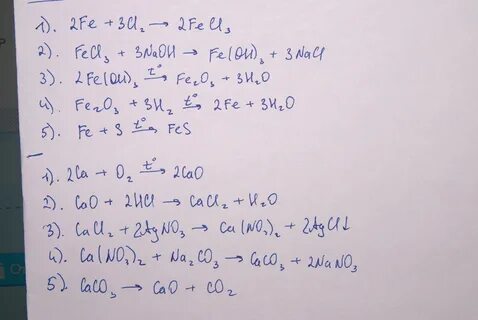 1). 2Fe + 3Cl₂ → 2FeCl₃
2). FeCl₃ + 3NaOH → Fe(OH)₃ + 3NaCl
3). 2Fe(OH)₃ t°→ Fe₂O₃ + 3H₂O
4). Fe₂O₃ + 3H₂ t°→ 2Fe + 3H₂O
5). Fe + S t°→ FeS
1). 2Ca + O₂ t°→ 2CaO
2). CaO + 2HCl → CaCl₂ + H₂O
3). CaCl₂ + 2AgNO₃ → Ca(NO₃)₂ + 2AgCl↓
4). Ca(NO₃)₂ + Na₂CO₃ → CaCO₃ + 2NaNO₃
5). CaCO₃ → CaO + CO₂